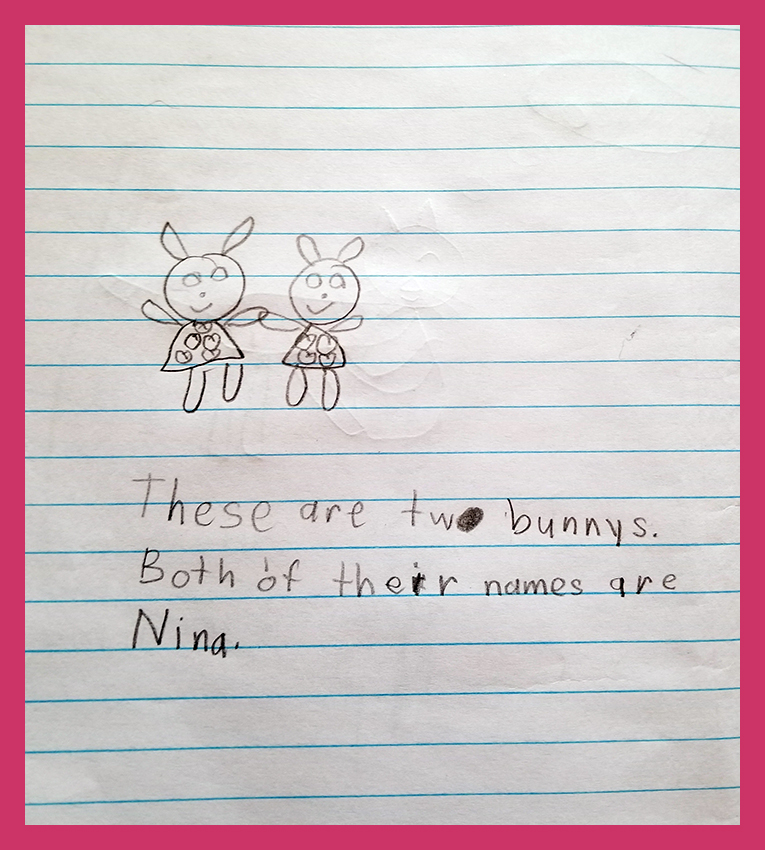 These are two bunnys.
Both of their names are
Nina.